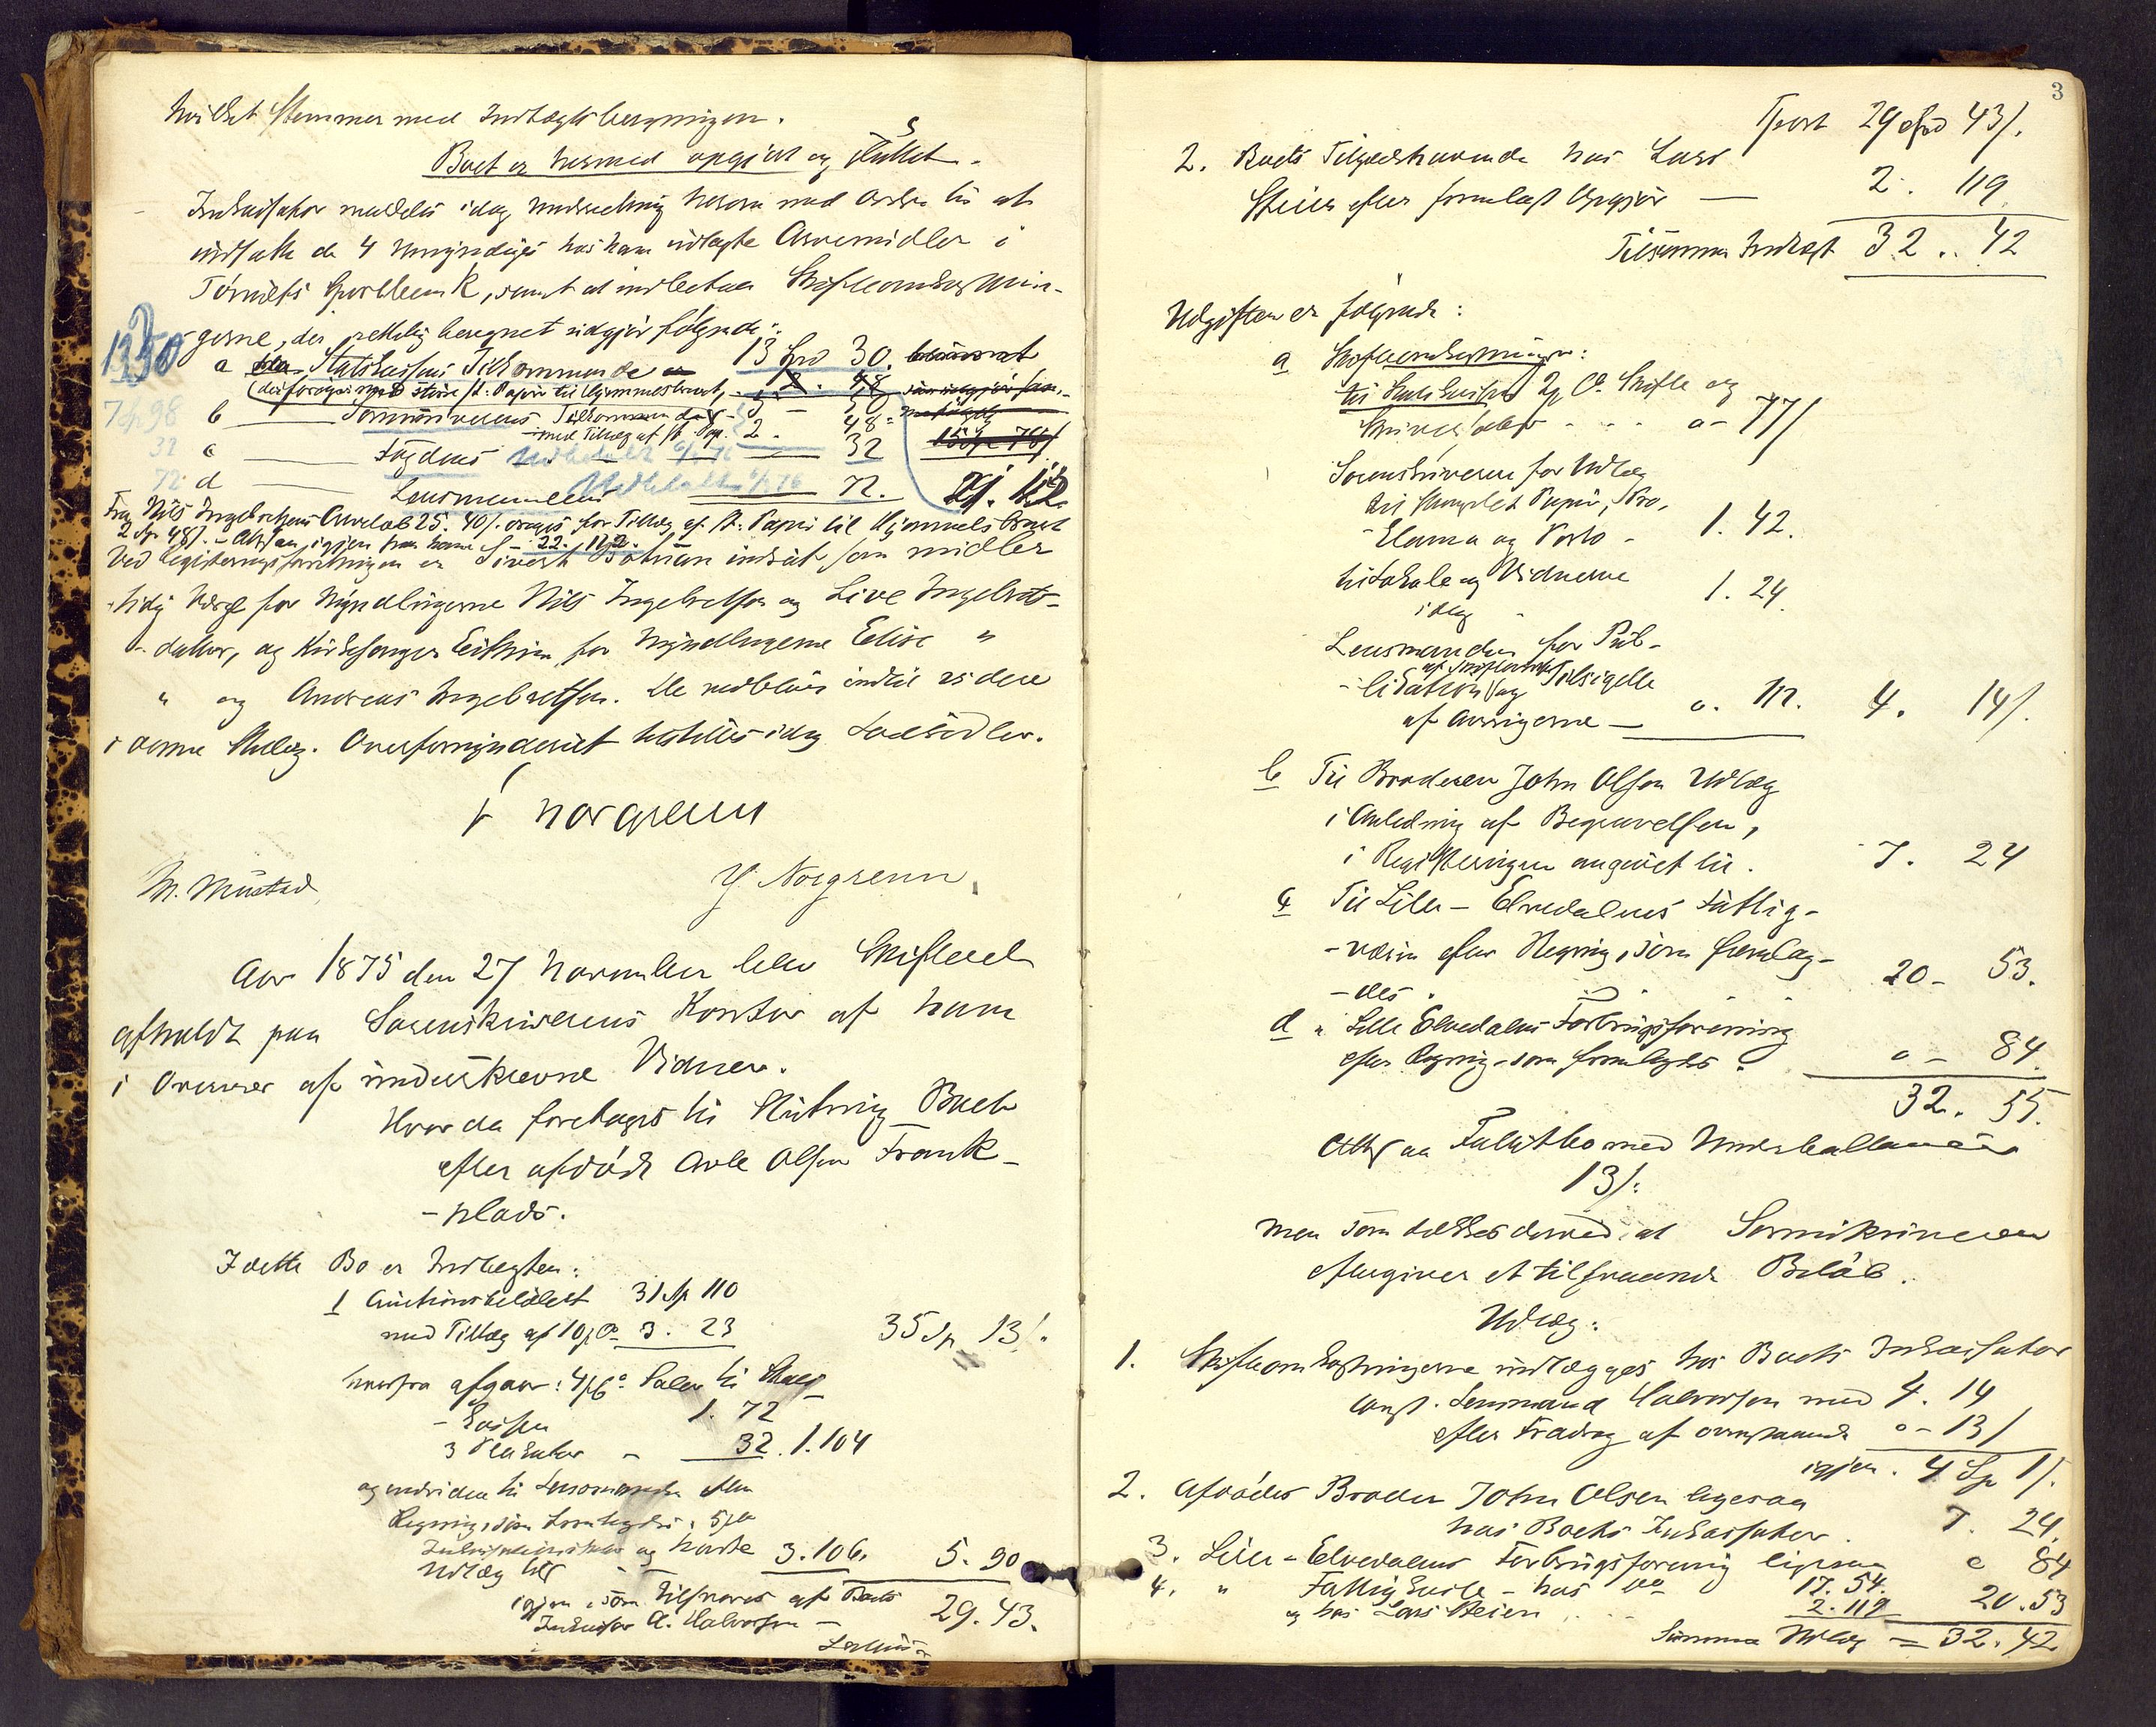 hvilket stemmer med Indtægtsberegningen.
Boet er hermed opgjort og sluttet.
Inkassator meddeles idag Underretning herom med Ordre til at
indsætte de 4 Umyndiges hos ham udlagte Arvemidler i
Tønsets Sparebank, samt at indbetale Skifteomkostnin-
gerne, der rettelig beregnet udgjør følgende:
1350
a Statskassens Tilkommende 13 Spd 30.
7 Sp. 98 b Sorenskriverens Tilkommende
med Tillæg af st. Pap. 2. 48
32 c Fogdens 32
72 d Lensmandens 72.
Fra Nils Ingebretsens Arvelod 25. 40/. for Tillæg af st. Papir til Hjemmelsbrevet
2 Sp 48/. - Altsaa igjen hos ham S - 22. 112.
Ved Registreringsforretningen er Sivert indsat som midler-
tidig Værge for Myndlingerne Nils Ingebretsen og Live Ingebrets-
datter, og Kirkesanger for Myndlingerne Elise "
" og Andreas Ingebretsen. De vedbliver indtil videre
i denne Stilling. Overformynderiet tilstilles idag Lodsedler.
Norgrenn
M. Mustad
Y Norgrenn
Aar 1875 den 27 November blev Skifteret
afholdt paa Sorenskriverens Kontor af ham
i Overvær af underskrevne Vidner.
Hvor da foretages til Slutning Boet
efter afdøde Arle Olsen Frank-
-plads.
I dette Bo er Indtægten:
1 Auctionsbeløbet 31 Sp 110
med Tillæg af 10 pC. 3. 23 35 Sp 13/.
hvorfra afgaar: 4 pC. Salær til Stats-
-kassen 1. 72
3 Plakater - 32. 1. 104
og endvidere til Lensmanden efter
Regning, som fremlagdes, 5 pC
og havte
Udlæg 3. 106. 5. 90
igjen, som tilsvares af Boets
Inkassator A. Halvorsen - 29. 43.
3
Tport 29 Spd 43/.
2. Boets Tilgodehavende hos Lars
Steien efter fremlagt Opgjør — 2. 119
Tilsammen Indtægt 32.. 42
Udgiften er følgende:
a Skifteomkostninger:
til Statskassen 2 pC. Skifte og
- - - o - 77/
Sorenskriveren for Udlæg
til stemplet Papir, Pro-
-klama og Porto - 1. 42.
til Lokale og Vidnerne
idag - 1. 24.
Lensmanden for Pub-
-likation af Proklamaet og Tilsigelse
af Arvingerne — o. 112. 4. 14/.
b Til Broderen John Olsen Udlæg
i Anledning af Begravelsen,
i Registreringen angivet til. 7. 24
c Til Lille-Elvedalens Fattig-
-væsen efter Regning, som fremlag-
-des. 20 - 53.
d " Lille Elvedalens Forbrugsforening
efter Regning som fremlagdes. o - 84.
32. 55.
Altsaa Fallitbo med Underballance
13/.
men som dækkes derved, at Sorenskriveren
eftergiver et tilsvarende Beløb.
Udlæg:
1. Skifteomkostningerne udlægges hos Boets Inkassator
const. Lensmand Halvorsen med 4. 14
efter Fradrag af ovenstaaende o - 13/
igjen. 4 Sp 1/.
2. Afdødes Broder John Olsen ligesaa
hos Boets Inkassator. 7. 24.
3. Lille-Elvedalens Forbrugsforening ligesaa o 84
4. " Fattigkasse - hos do 17. 54.
og hos Lars Steien 2. 119 20. 53
Summa Udlæg = 32. 42